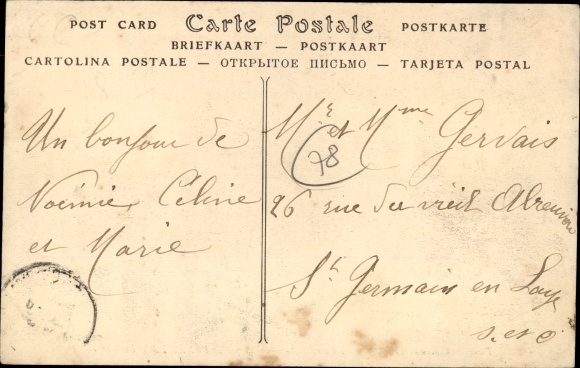 POST CARD Carte Postale POSTKARTE
BRIEFKAART — POSTKAART
CARTOLINA POSTALE — ОТКРЫТОЕ ПИСЬМО — TARJETA POSTAL
Un bonjour de
Noémie, Céline
et Marie
Mr et Mme Gervais
78
26 rue du vieil Abreuvoir
St Germain en Laye
S. et O.